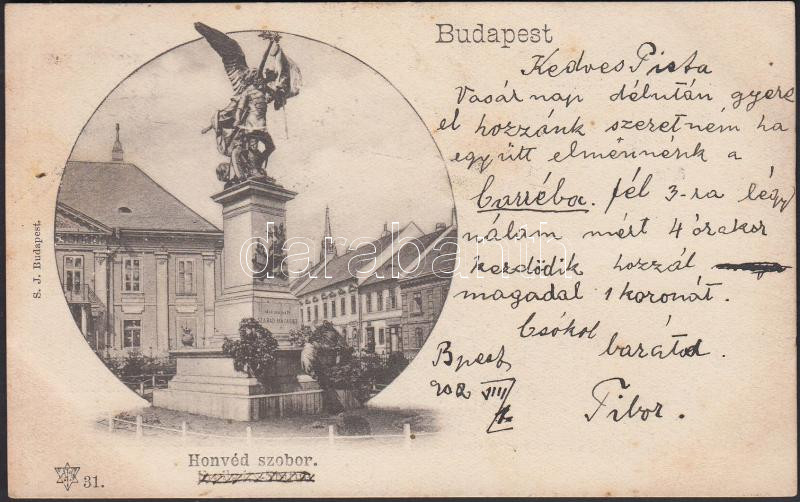 Budapest
Kedves Pista
Vasárnap délután gyere
el hozzánk szeretném ha
együtt elménnénk a
Carréba. fél 3-ra légy
nálam mért 4 órakor
kezdödik hozzál
magadal 1 koronát.
Csókol
barátod
Bpest
902 VIII
1.
Tibor.
S. J. Budapest.
SZABAD HAZÁÉRT
darabanth
Honvéd szobor.
31.